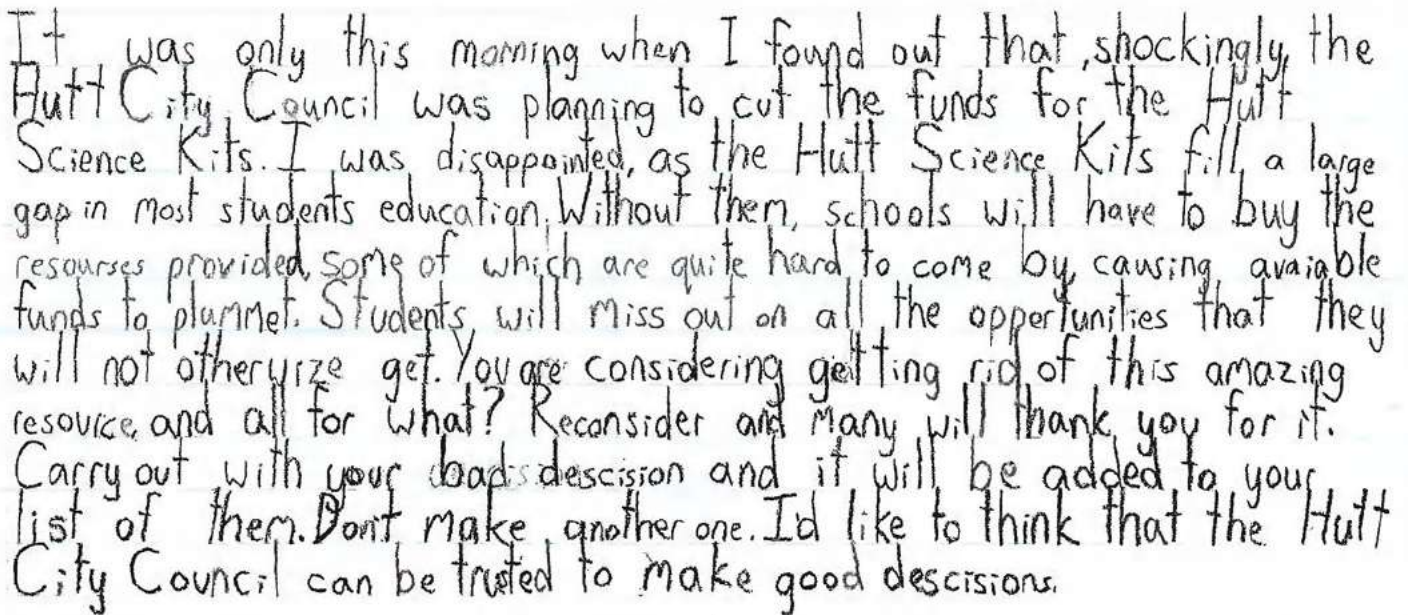 It was only this morning when I found out that, shockingly, the
Hutt City Council was planning to cut the funds for the Hutt
Science Kits. I was disappointed, as the Hutt Science Kits fill a large
gap in most students education. Without them, schools will have to buy the
resourses provided, some of which are quite hard to come by, causing avaiable
funds to plummet. Students will miss out on all the oppertunities that they
will not otheryrize get. You are considering geitting rid of this amazing
resource, and all for what? Reconsider and many will thank you for it.
Carry out with your bad descision and it will be added to your
list of them. Don't make another one. I'd like to think that the Hutt
City Council can be trusted to make good descisions.